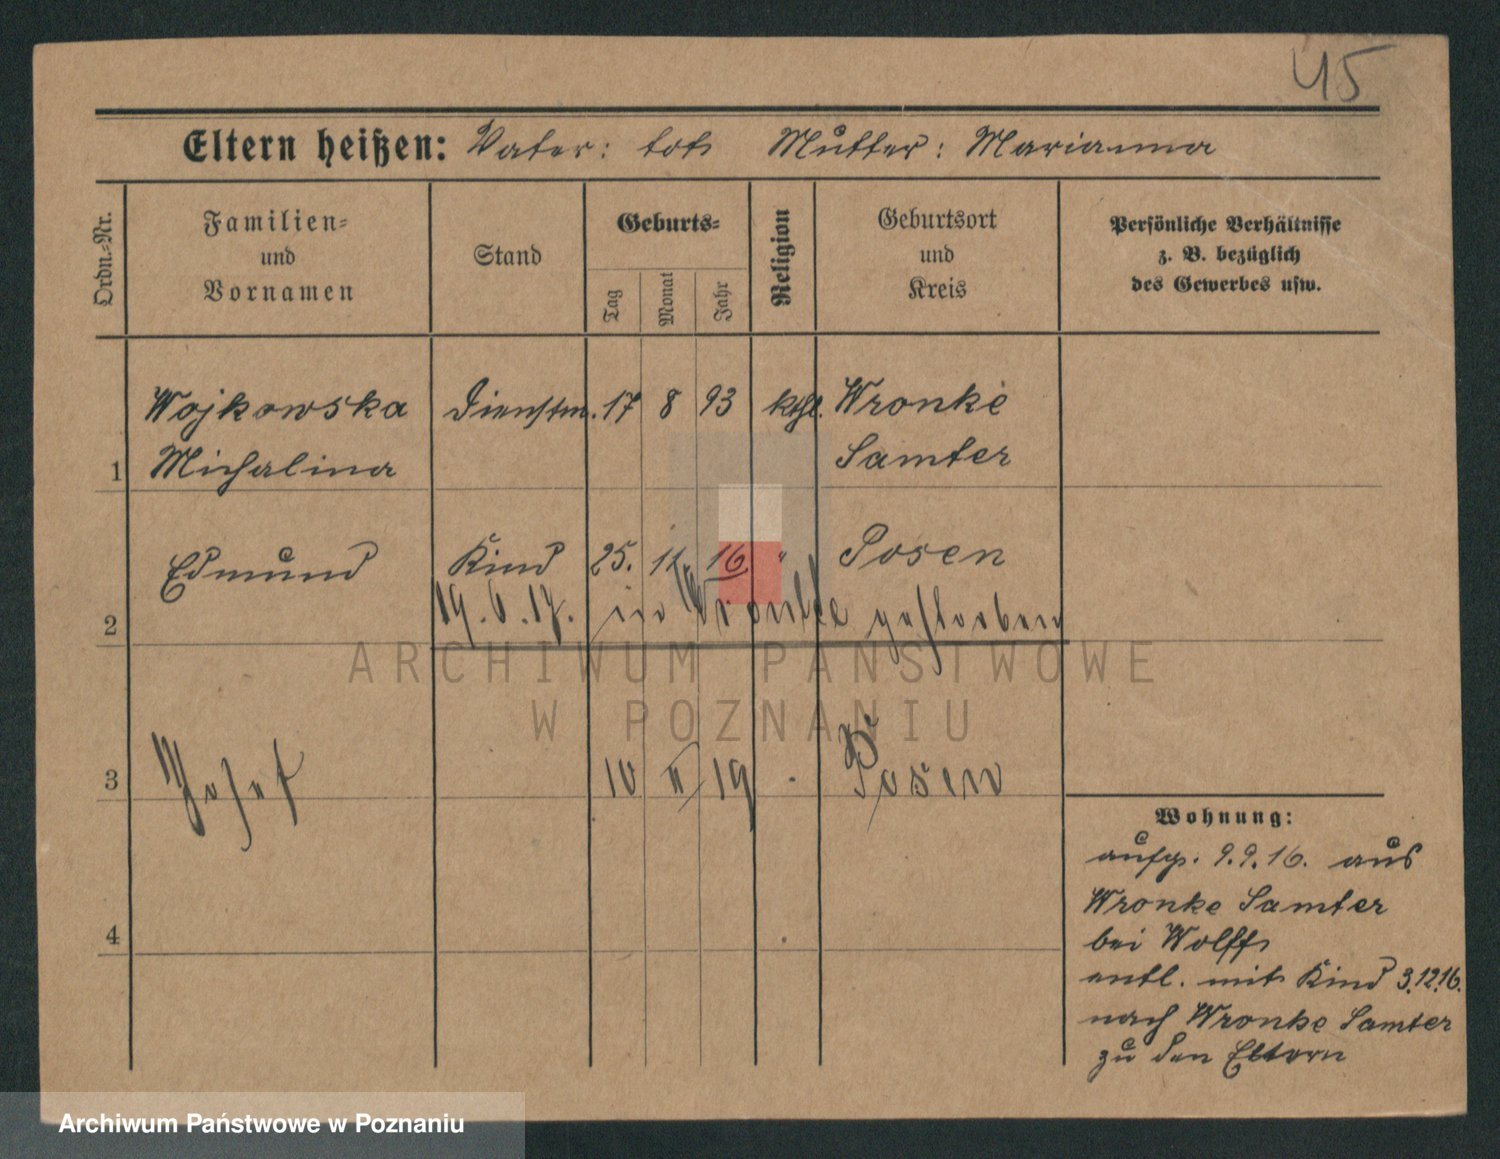 45
Eltern heißen: Vater: tot Mutter: Marianna
Ordn.=Nr.
Familien=
und
Vornamen
Stand
Geburts=
Tag
Monat
Jahr
Religion
Geburtsort
und
Kreis
Persönliche Verhältnisse
z. B. bezüglich
des Gewerbes usw.
Wojkowska Dienstm. 17 8 93 kthl. Wronke
1 Michalina Samter
Edmund Kind 25. 11 16 " Posen
2 19.6.17. in Wronke gestorben
ARCHIWUM PAŃSTWOWE
W POZNANIU
3 Josef 10 II 19 Posen
Wohnung:
aufg. 9.9.16. aus
Wronke Samter
4 bei Wolff
entl. mit Kind 3.12.16.
nach Wronke Samter
zu den Eltern
Archiwum Państwowe w Poznaniu